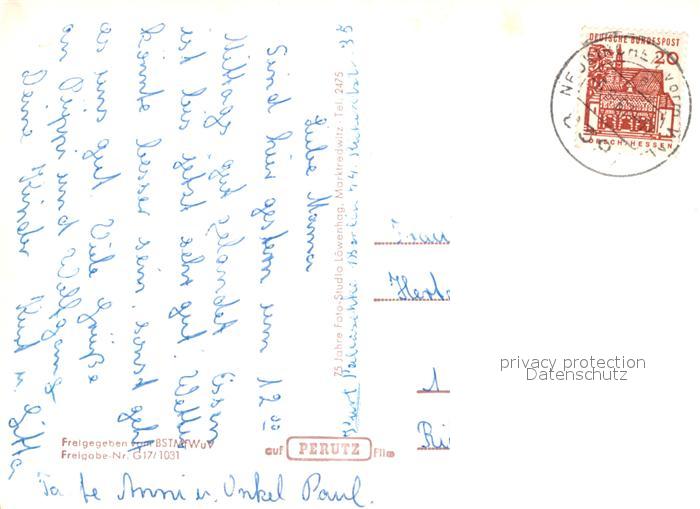 Liebe Mama
Sind hier gestern um 12 00
Mittags gut gelandet Essen
ist bis jetzt sehr gut. Wetter
könnte besser sein, sonst geht
es uns gut. Viele Grüße
an Peppi und Wolfgang
Deine Kinder Kurt u. Gitta
Ta te Anni u. Onkel Paul.
Berlin 44.
35
75 Jahre Foto-Studio Löwenhag, Marktredwitz, Tel. 2475
Freigegeben vom BSTMfWuV
Freigabe-Nr. G17/1031
auf PERUTZ Film
DEUTSCHE BUNDESPOST
20
LORSCH/HESSEN
Frau
1
privacy protection
Datenschutz